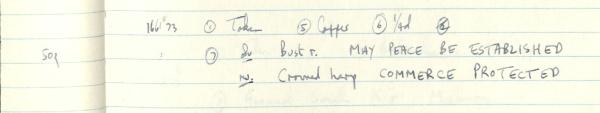 166" 73 ① Token ⑤ Copper ⑥ 1/4d ⑧
509 ⑦ Ob Bust r. MAY PEACE BE ESTABLISHED
rev. Crowned harp COMMERCE PROTECTED